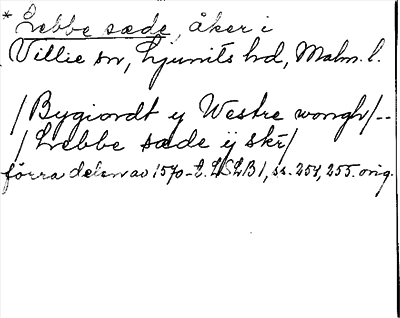 * Lebbe sæde, åker i
Villie sn, Ljunits hd, Malm. l.
/Bygiordt y Westre wongh/--
/Lebbe sæde ÿ skr/
förra delen av 1570-t. LSLB1, ss. 254, 255. orig.